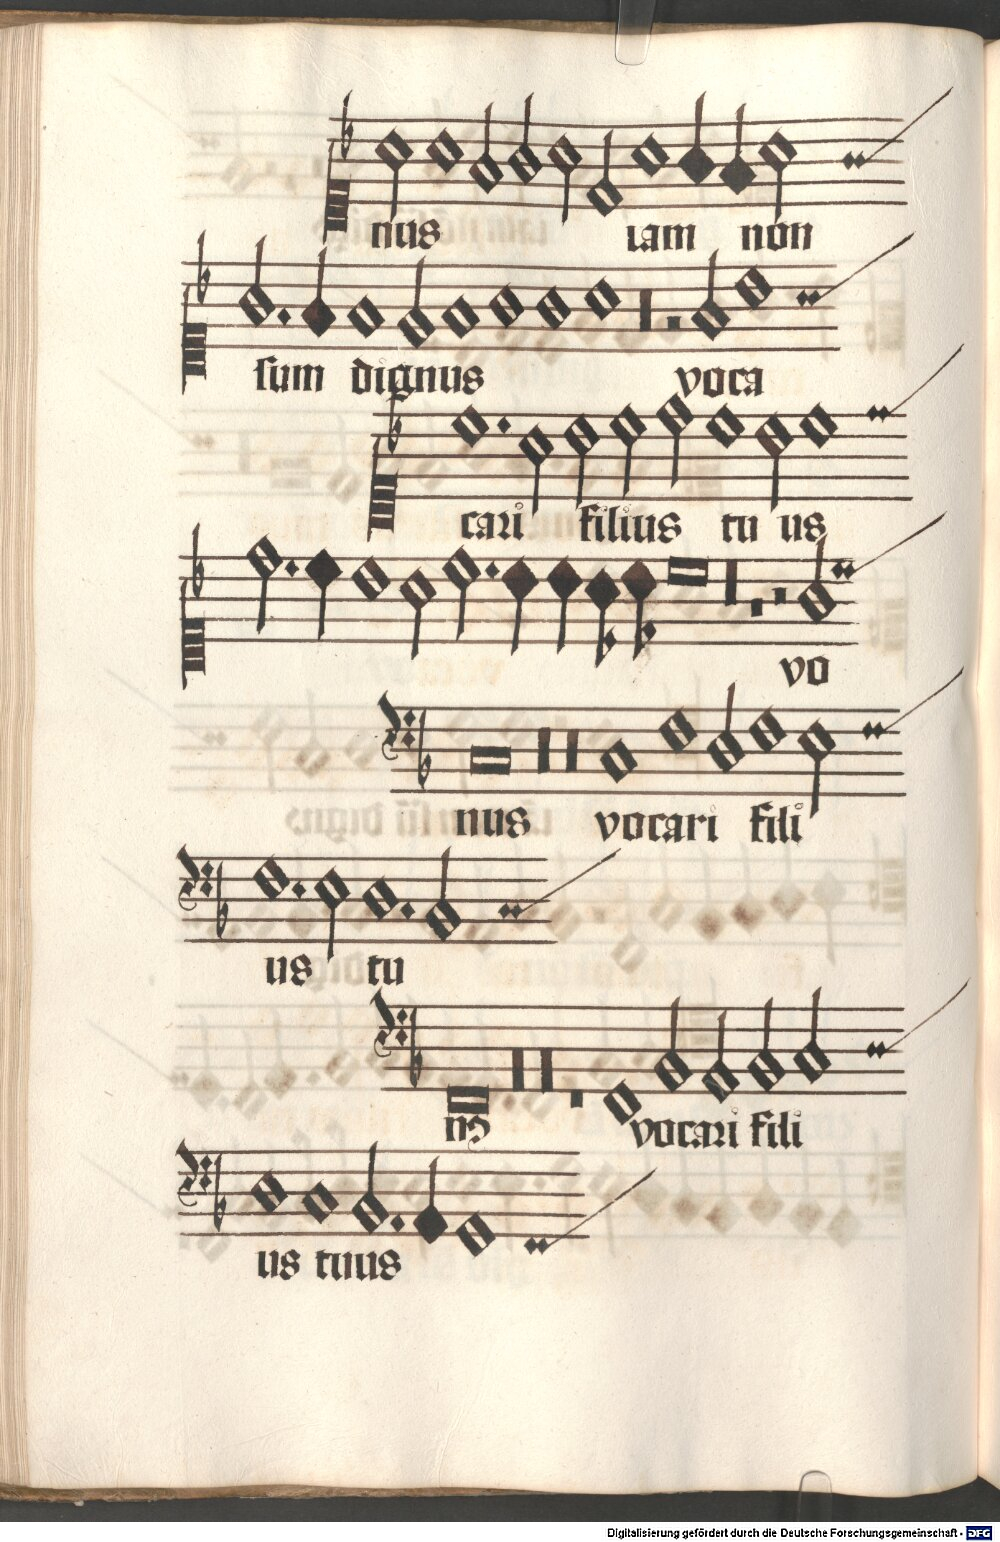 nus iam non
sum dignus voca
cari filius tu us
vo
nus vocari fili
us tu
nꝫ vocari fili
us tuus
Digitalisierung gefördert durch die Deutsche Forschungsgemeinschaft - DFG